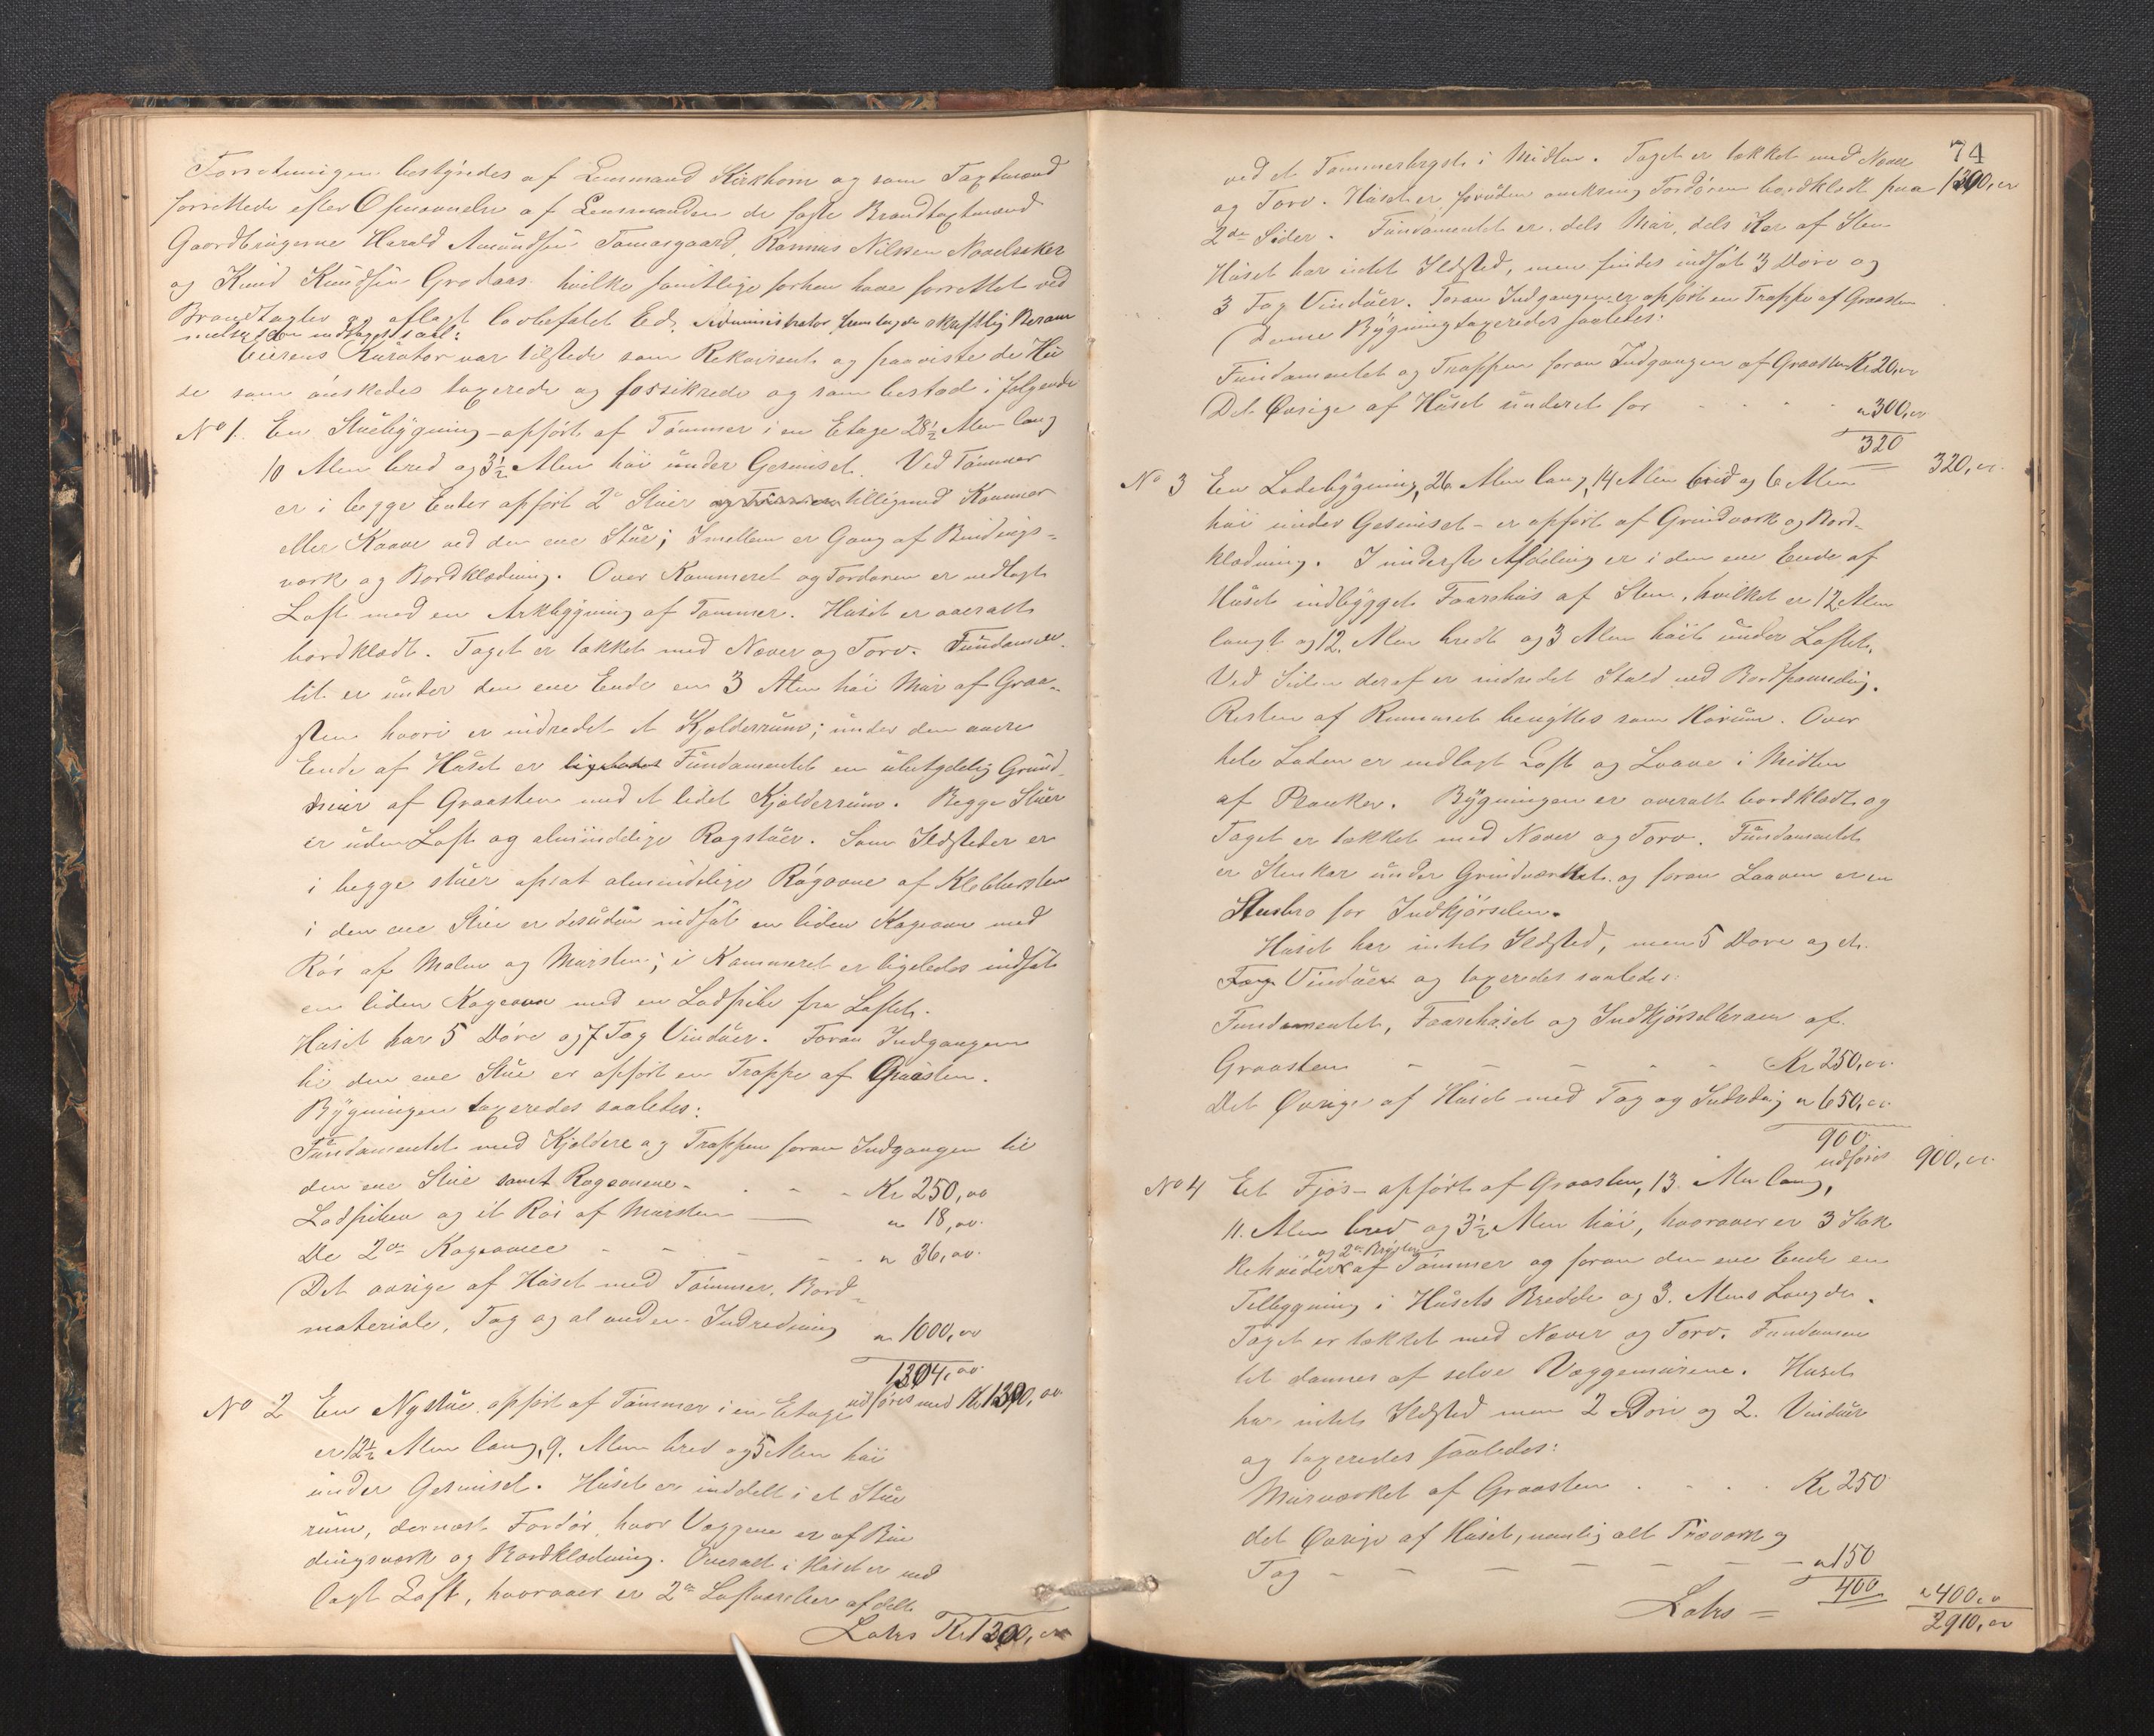 Forretningen bestyredes af Lensmand Kirkhorn og som Taxtmænd
forrettede efter Opnævnelse af Lensmanden de faste Brandtaxtmænd
Gaardbrugerne Harald Amundsen Tomasgaard, Rasmus Nilssen Navelsaker
og Knud Knudsen Grodaas hvilke samtlige forhen have forrettet ved
Brandtaxter og aflagt lovbefalet Ed. Administrator fremlagde skriftlig Beram
melse som indtages saal:
Eierens Kurator var tilstede som Rekvirent og paaviste de Hu
se som ønskedes taxerede og forsikrede og som bestod i følgende
No 1. En Stuebygning opført af Tømmer i en Etage 28½ Alen lang
10 Alen bred og 3½ Alen høi under Gesimset. Ved Tømmer
er i begge Ender opført 2de Stuer tilligemed Kammer
eller Kaave ved den ene Stue; Imellem er Gang af Bindings-
værk og Bordklædning. Over Kammeret og Fordøren er indlagt
Loft med en Arkbygning af Tømmer. Huset er overalt
bordklædt. Taget er tækket med Næver og Torv. Fundamen-
tet er under den ene Ende en 3 Alen høi Mur af Graa-
sten hvori er indredet et Kjelderrum; under den andre
Ende af Huset er ligeledes Fundamentet en ubetydelig Grund
mur af Graasten med et lidet Kjelderrum. Begge Stuer
er uden Loft og almindelige Røgstuer. Som Ildsteder er
i begge stuer opsat almindelige Røgovne af Klebbersten
i den ene Stue er desuden indsat en liden Kogeovn med
Rør af Malm og Mursten; i Kammeret er ligeledes indsat
en liden Kogeovn med en Ladpibe fra Loftet.
Huset har 5 Døre og 7 Fag Vinduer. Foran Indgangen
til den ene Stue er opført en Trappe af Graasten.
Bygningen taxeredes saaledes:
Fundamentet med Kjeldere og Trappen foran Indgangen til
den ene Stue samt Røgovnene - - - Kr 250,00
Ladpiben og et Rør af Mursten — " 18,00
De 2de Kogeovne - - - - " 36,00
Det øvrige af Huset med Tømmer, Bord-
materiale, Tag og al anden Indredning " 1000,00
1304,00
udføres med Kr 1300,00
No 2 En Nystue opført af Tømmer i en Etage
er 12½ Alen lang, 9 Alen bred og 5 Alen høi
under Gesimset. Huset er inddelt i et Stue
rum, dernæst Fordør, hvor Væggene er af Bin
dingsværk og Bordklædning. Overalt i Huset er ind
lagt Loft, hvorover er 2de Loftværelser afdelt
Latus Kr 1300,00
74
ved et Tømmerbryst i Midten. Taget er tækket med Næver
og Torv. Huset er foruden omkring Fordøren bordklædt paa 1300,00
2de Sider. Fundamentet er dels Mur, dels Kar af Sten
Huset har intet Ildsted, men findes indsat 3 Døre og
3 Fag Vinduer. Foran Indgangen er opført en Trappe af Graasten
Denne Bygning taxeredes saaledes:
Fundamentet og Trappen foran Indgangen af Graasten Kr 20,00
Det Øvrige af Huset vurderet for - - - " 300,00
320
320,00
No 3 En Ladebygning, 26 Alen lang, 14 Alen bred og 6 Alen
høi under Gesimset - er opført af Grindværk og Bord-
klædning. I underste Afdeling er i den ene Ende af
Huset indbygget Faarehus af Sten, hvilket er 12 Alen
langt og 12 Alen bredt og 3 Alen høit under Loftet.
Ved Siden deraf er indredet Stald med Bordpanneling.
Resten af Rummet benyttes som Hørum. Over
hele Laden er indlagt Loft og Laave i Midten
af Planker. Bygningen er overalt bordklædt og
Taget er tækket med Næver og Torv. Fundamentet
er Stenkar under Grindværket og foran Laaven er en
Stenbro for Indkjørselen.
Huset har intet Ildsted, men 5 Døre og et
Fag Vinduer og taxeredes saaledes:
Fundamentet, Faarehuset og Indkjørselbroen af
Graasten - - - - - Kr 250,00
Det Øvrige af Huset med Tag og Indredning " 650,00
900
udføres 900,00
No 4 Et Fjøs - opført af Graasten, 13 Alen lang,
11 Alen bred og 3½ Alen høi, hvorover er 3 Stok
Rehvider og 2de Bryster af Tømmer og foran den ene Ende en
Tilbygning i Husets Bredde og 3 Alens Længde.
Taget er tækket med Næver og Torv. Fundamen
tet dannes af selve Væggemurene. Huset
har intet Ildsted men 2 Døre og 2 Vinduer
og taxeredes saaledes:
Murværket af Graasten - - - - Kr 250
det Øvrige af Huset, nemlig alt Træværk og
Tag - - - - - - " 150
400 " 400,00
Latus = 2910,00